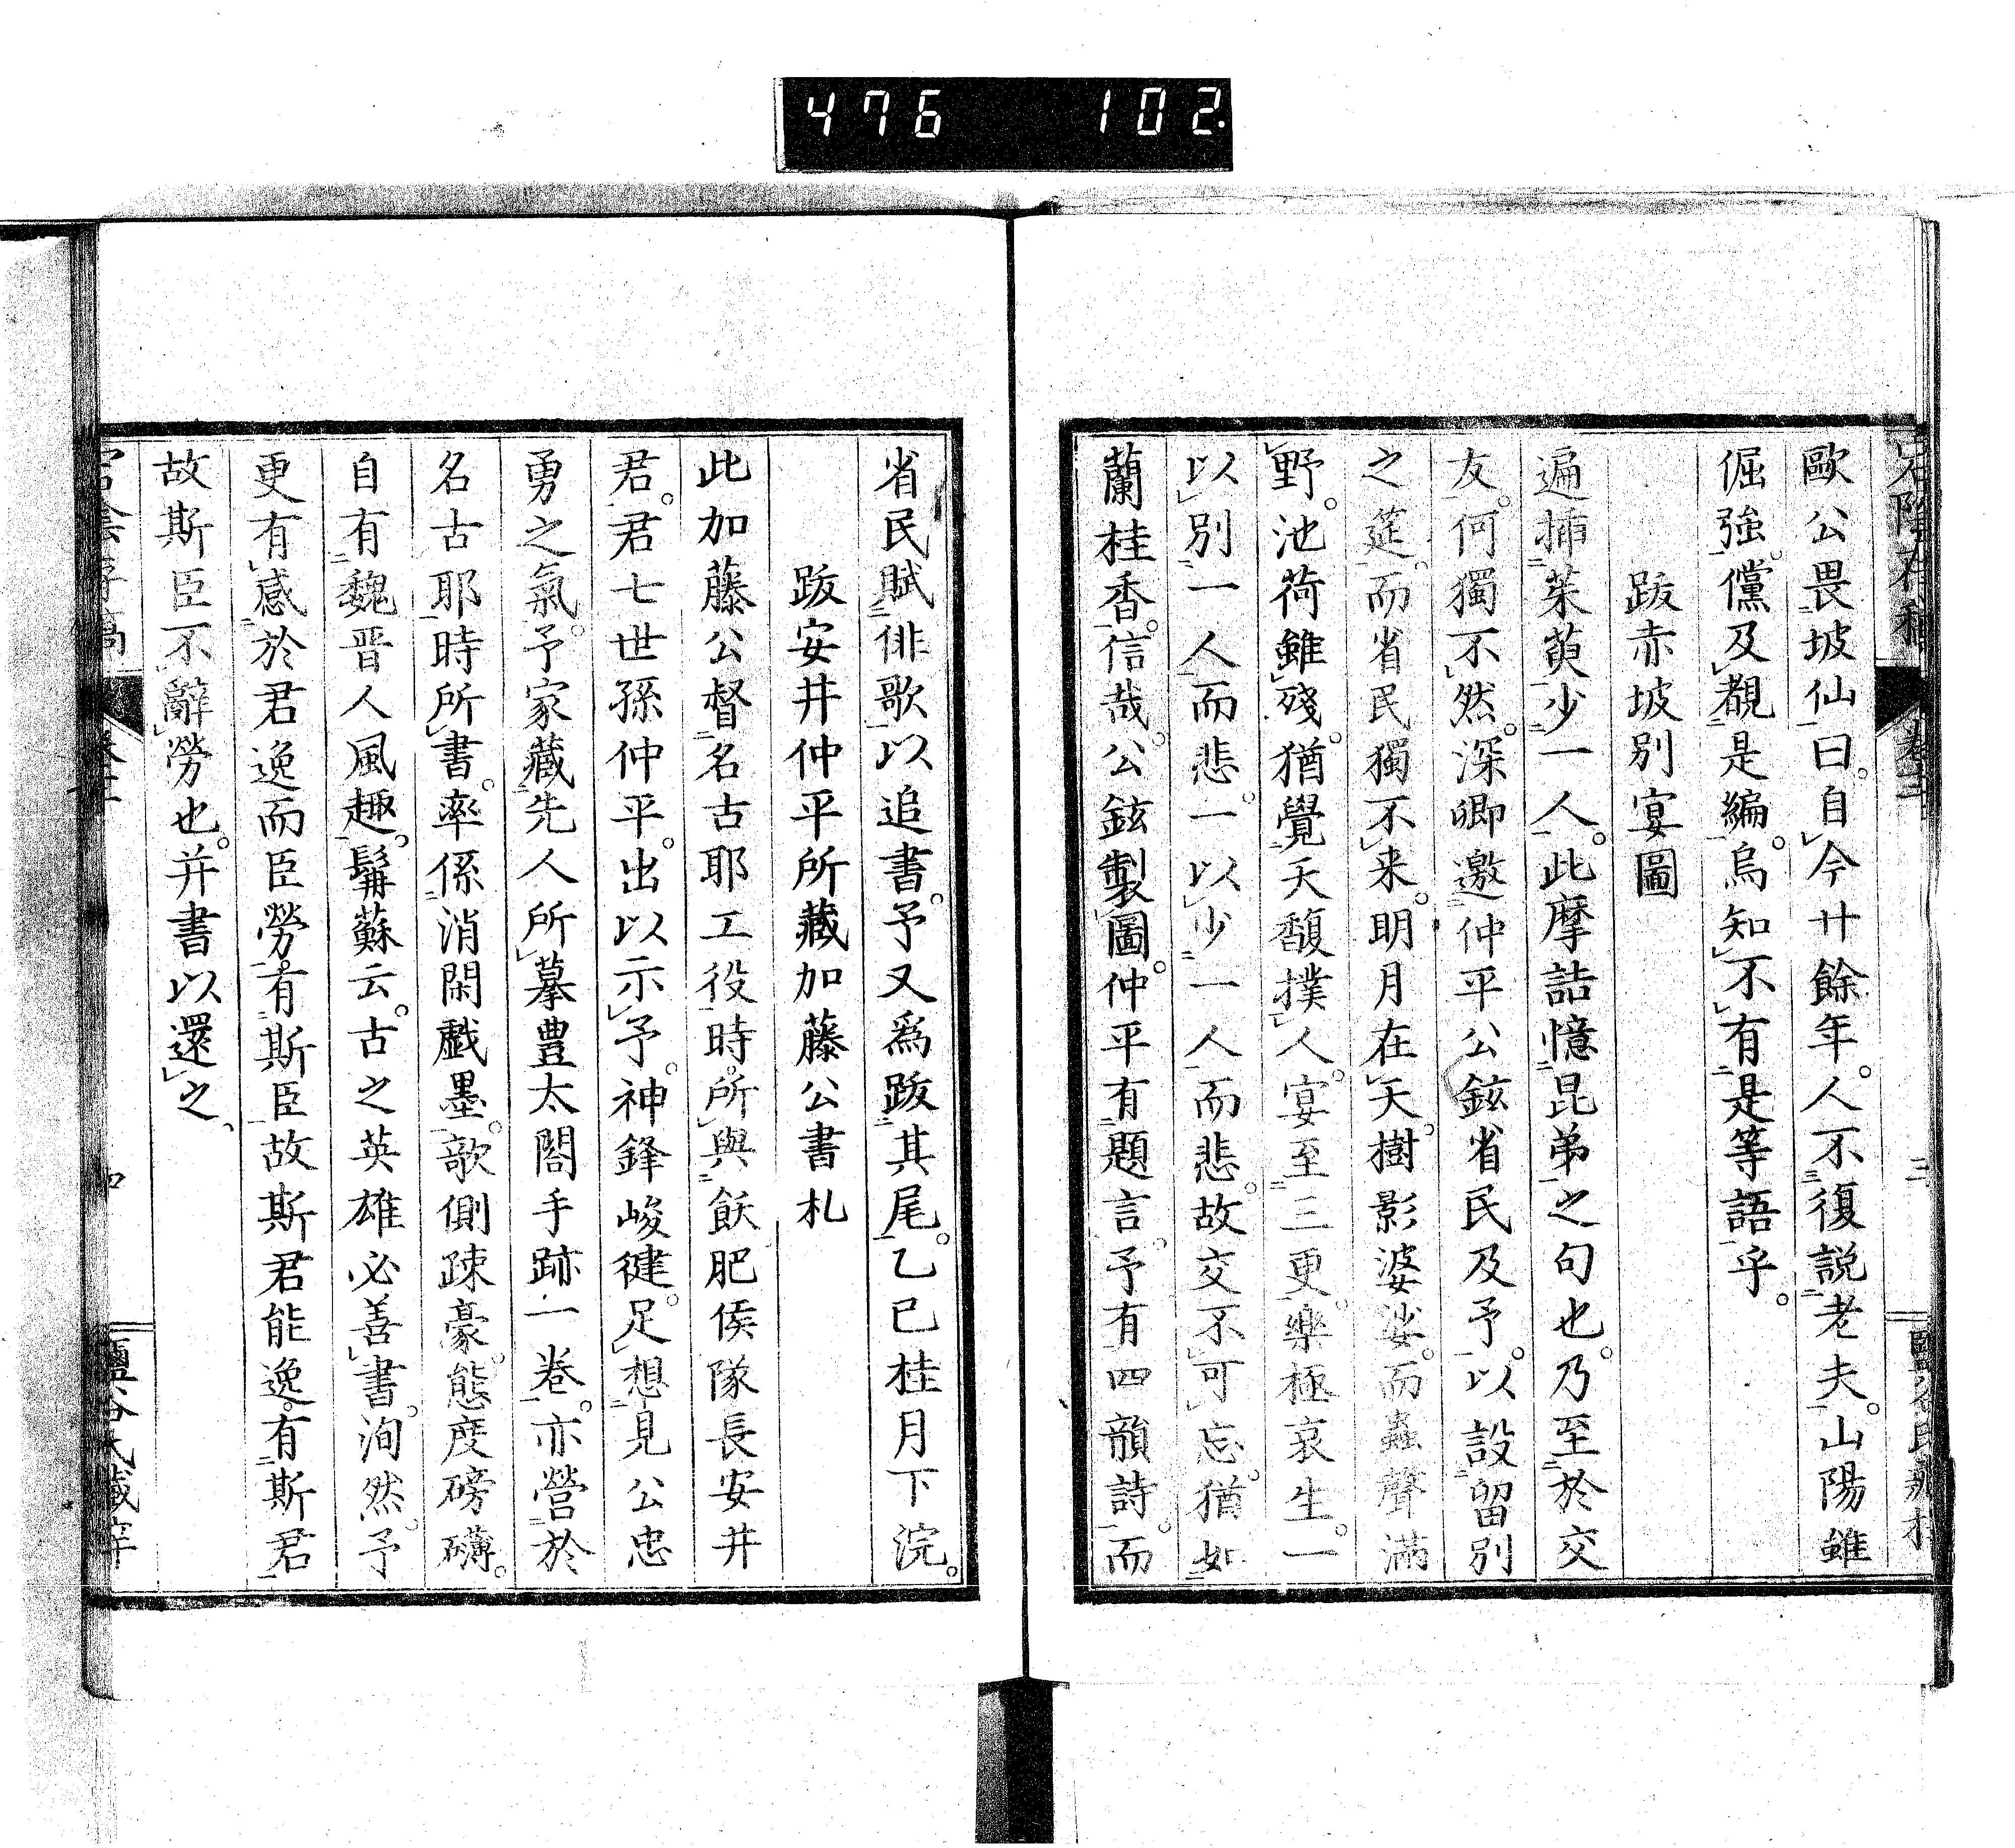 476 102.
歐公畏坡仙曰自今廿餘年人不復説老夫山陽雖
倔強儻及覩是編烏知不有是等語乎
跋赤坡別宴圖
遍揷茱萸少一人此摩詰憶昆弟之句也乃至於交
友何獨不然深卿邀仲平公鉉省民及予以設留別
之筵而省民獨不来明月在天樹影婆娑而蟲聲滿
野池荷雖殘猶覺天馥撲人宴至三更樂極哀生一
以別一人而悲一以少一人而悲故交不可忘猶如
蘭桂香信哉公鉉製圖仲平有題言予有四韻詩而
省民賦俳歌以追書予又爲跋其尾乙巳桂月下浣
跋安井仲平所藏加藤公書札
此加藤公督名古耶工役時所與飫肥侯隊長安井
君君七世孫仲平出以示予神鋒峻健足想見公忠
勇之氣予家藏先人所摹豊太閤手跡一卷亦營於
名古耶時所書率係消閑戲墨欹側疎豪態度磅礴
自有魏晋人風趣髯蘇云古之英雄必善書洵然予
更有感於君逸而臣勞有斯臣故斯君能逸有斯君
故斯臣不辭勞也并書以還之